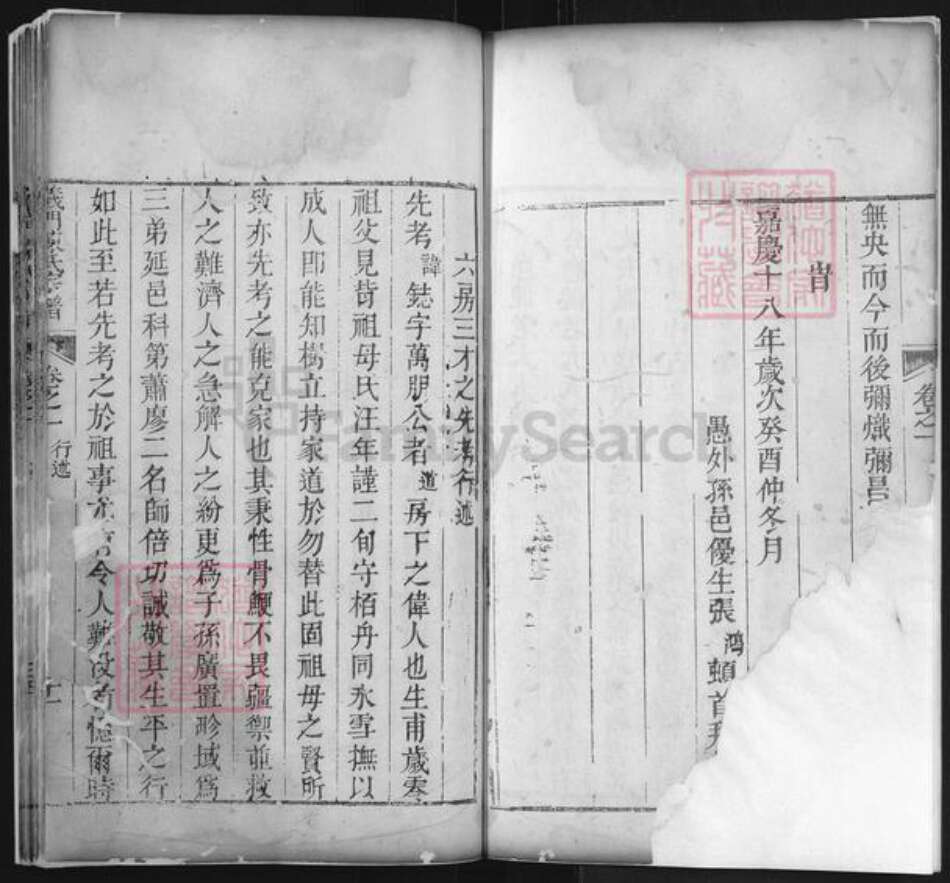 卷之一
無央而今而後彌熾彌昌
旹
嘉慶十八年歲次癸酉仲冬月
愚外孫邑優生張鴻頓首拜
六房三才之先考行述
先考諱鋕字萬朋公者道房下之偉人也生甫歲零
祖父見背祖母氏汪年謹二旬守栢舟同氷雪撫以
成人卽能知樹立持家道於勿替此固祖母之賢所
致亦先考之能克家也其秉性骨鯁不畏疆禦並救
人之難濟人之急解人之紛更爲子孫廣置畛域爲
三弟延邑科第蕭廖二名師倍切誠敬其生平之行
如此至若先考之於祖事尤令人難沒者憶爾時
義門宗譜
卷之一 行述
FamilySearch